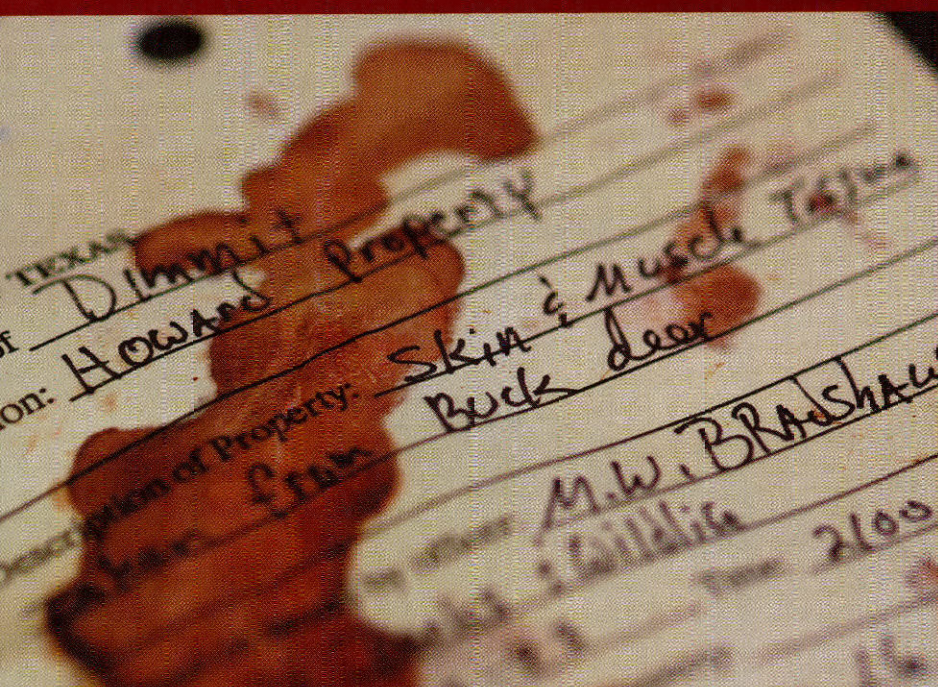 TEXAS
of Dimmit
ion: Howard Property
Description of Property: Skin & Muscle Tissue
from Buck deer
by officer M.W. BRAdshaw
& Wildlife
Time 2100